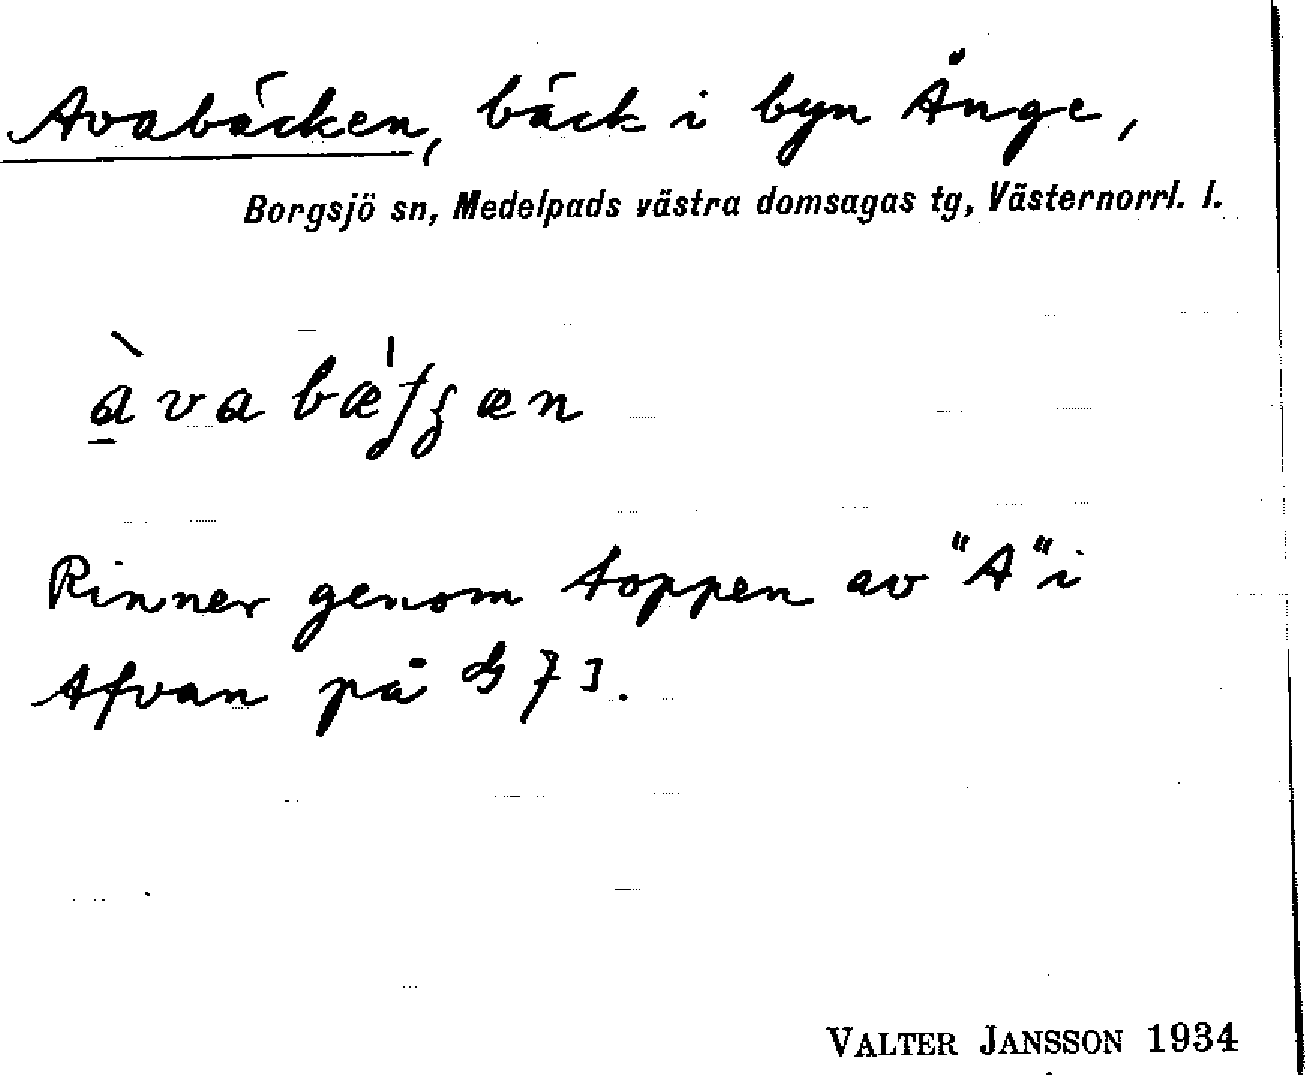 Avabäcken, bäck i byn Änge,
Borgsjö sn, Medelpads västra domsagas tg, Västernorrl. l.
Rinner genom toppen av "A" i
Afvan på
VALTER JANSSON 1934